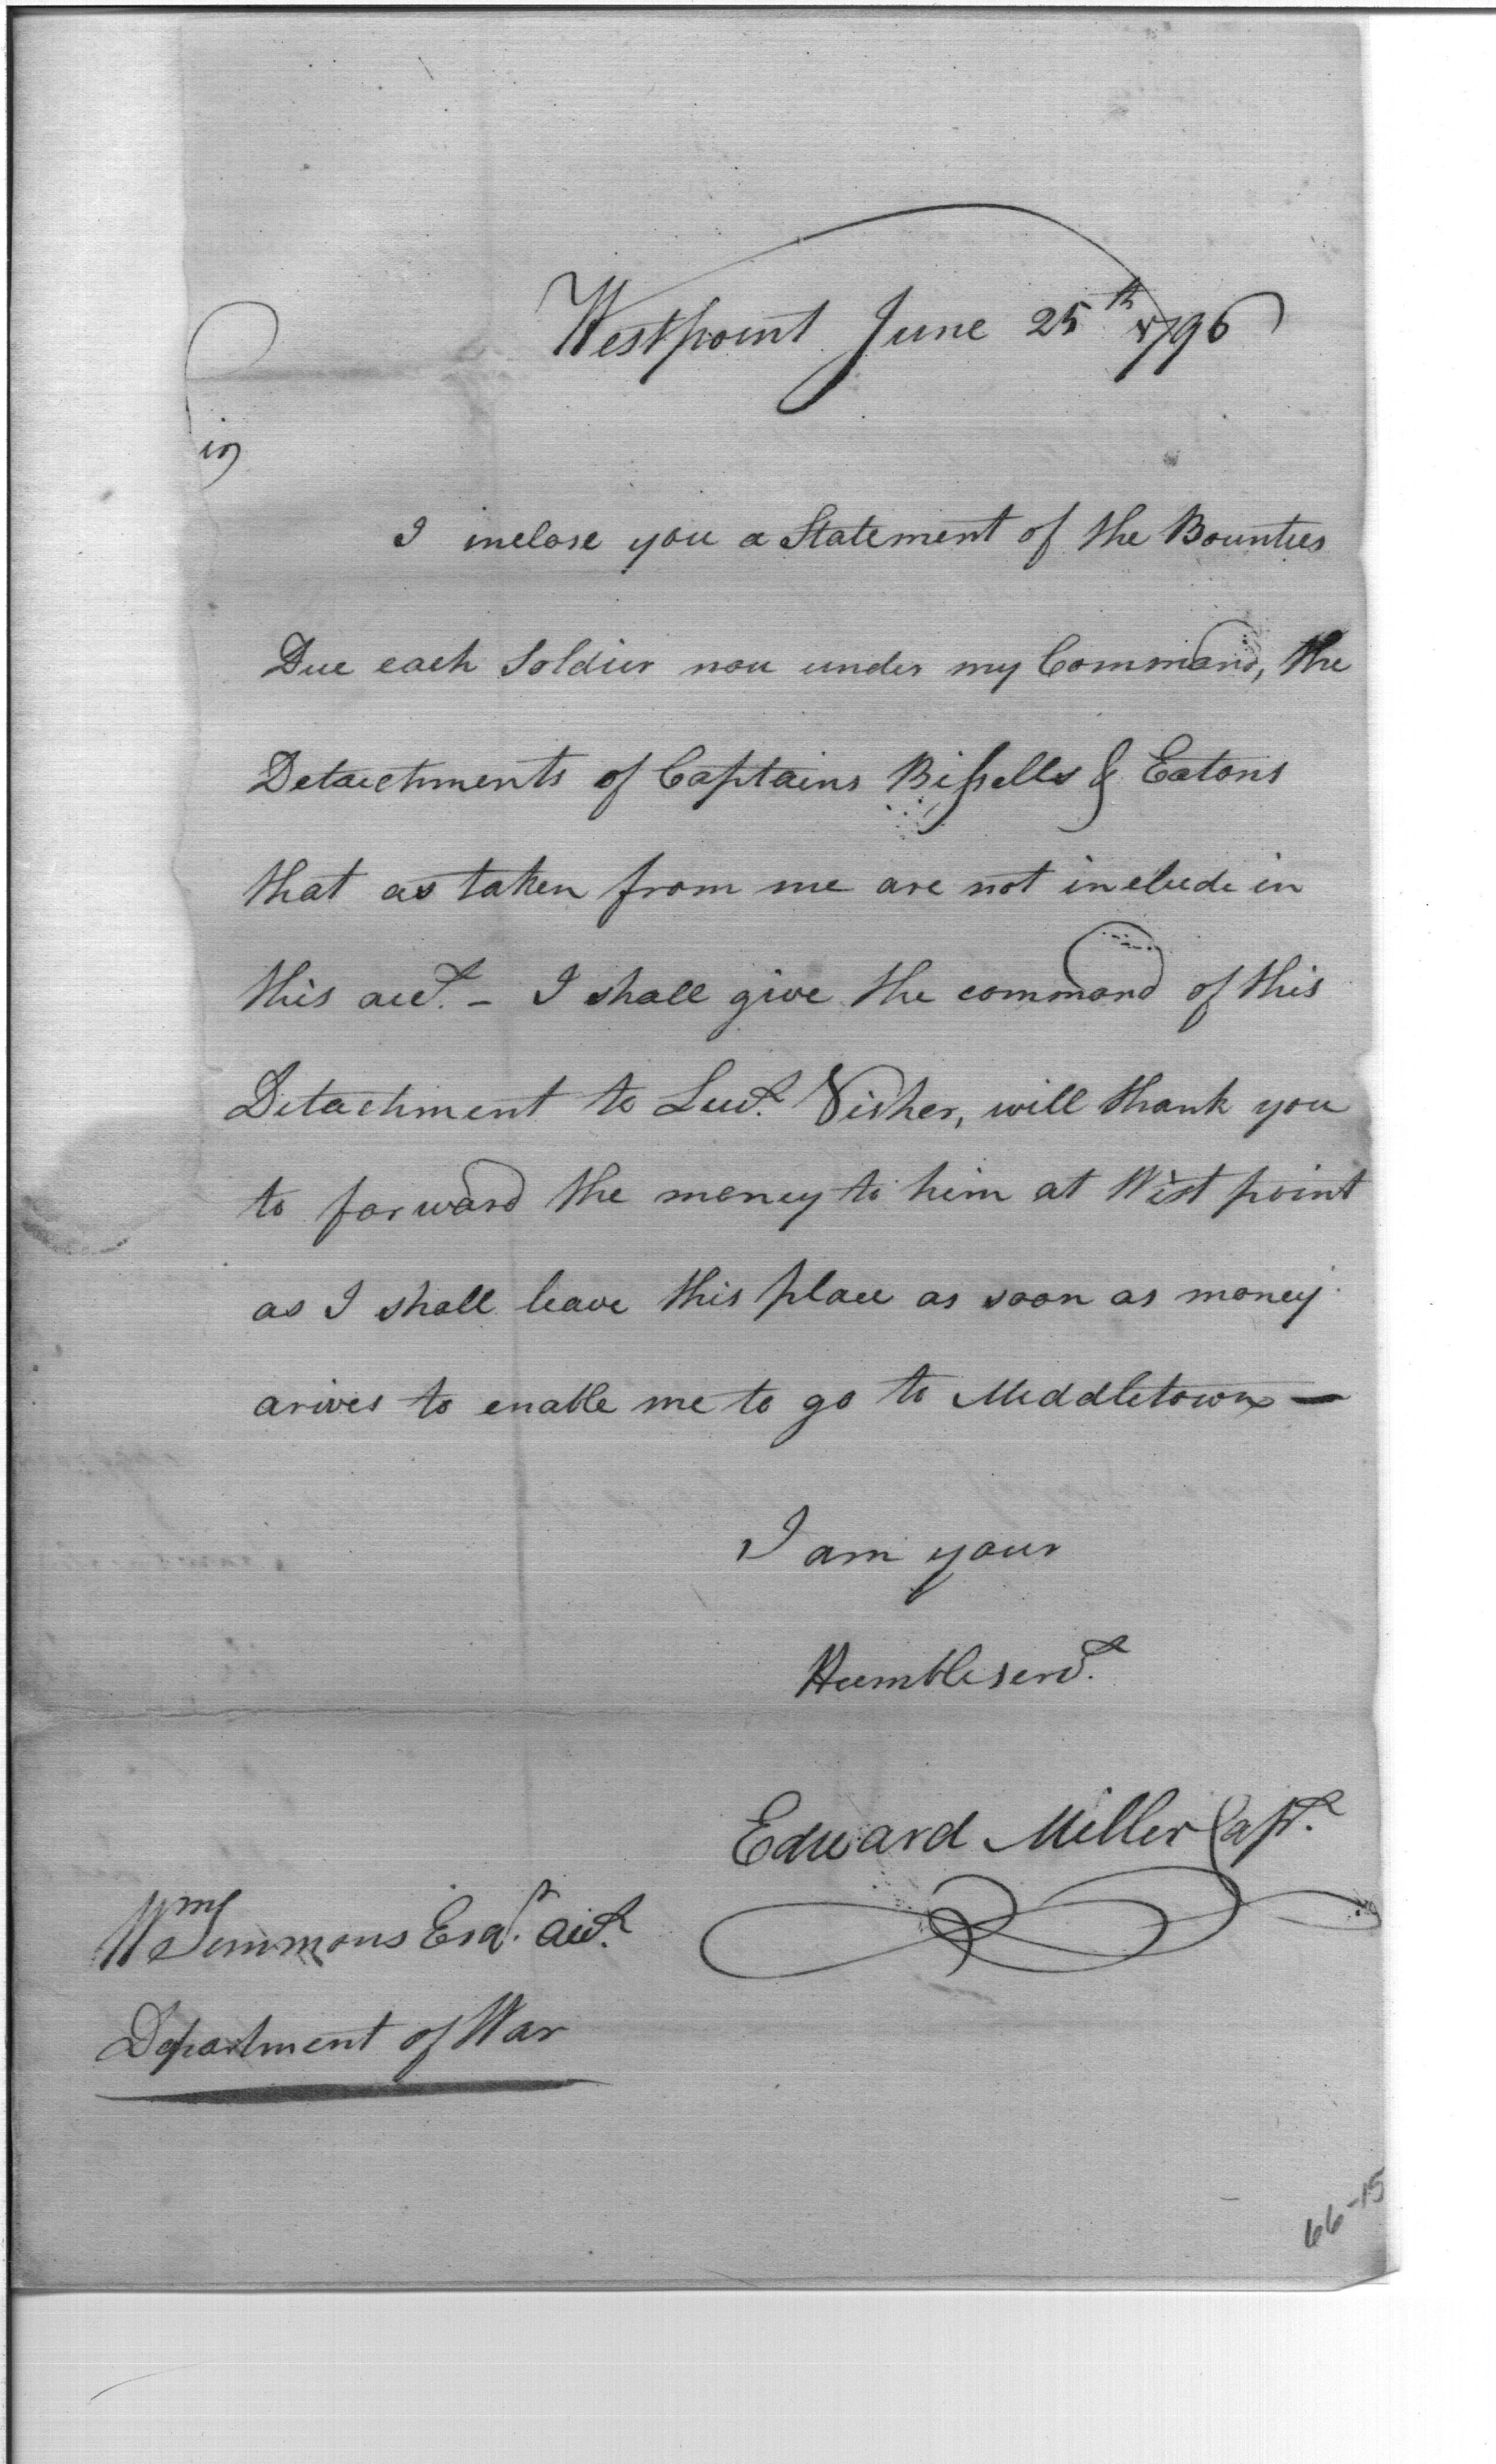 Westpoint June 25th 1796
I inclose you a Statement of the Bounties
Due each Soldier now under my Command, the
Detachments of Captains Bissells & Eatons
that as taken from me are not include in
this acct. - I shall give the command of this
Detachment to Lieut. Visher, will thank you
to forward the money to him at West point
as I shall leave this place as soon as money
arives to enable me to go to Middletown —
I am your
Humble servt.
Edward Miller Capt.
Wm Simmons Esqr. acct.
Department of War
66-15